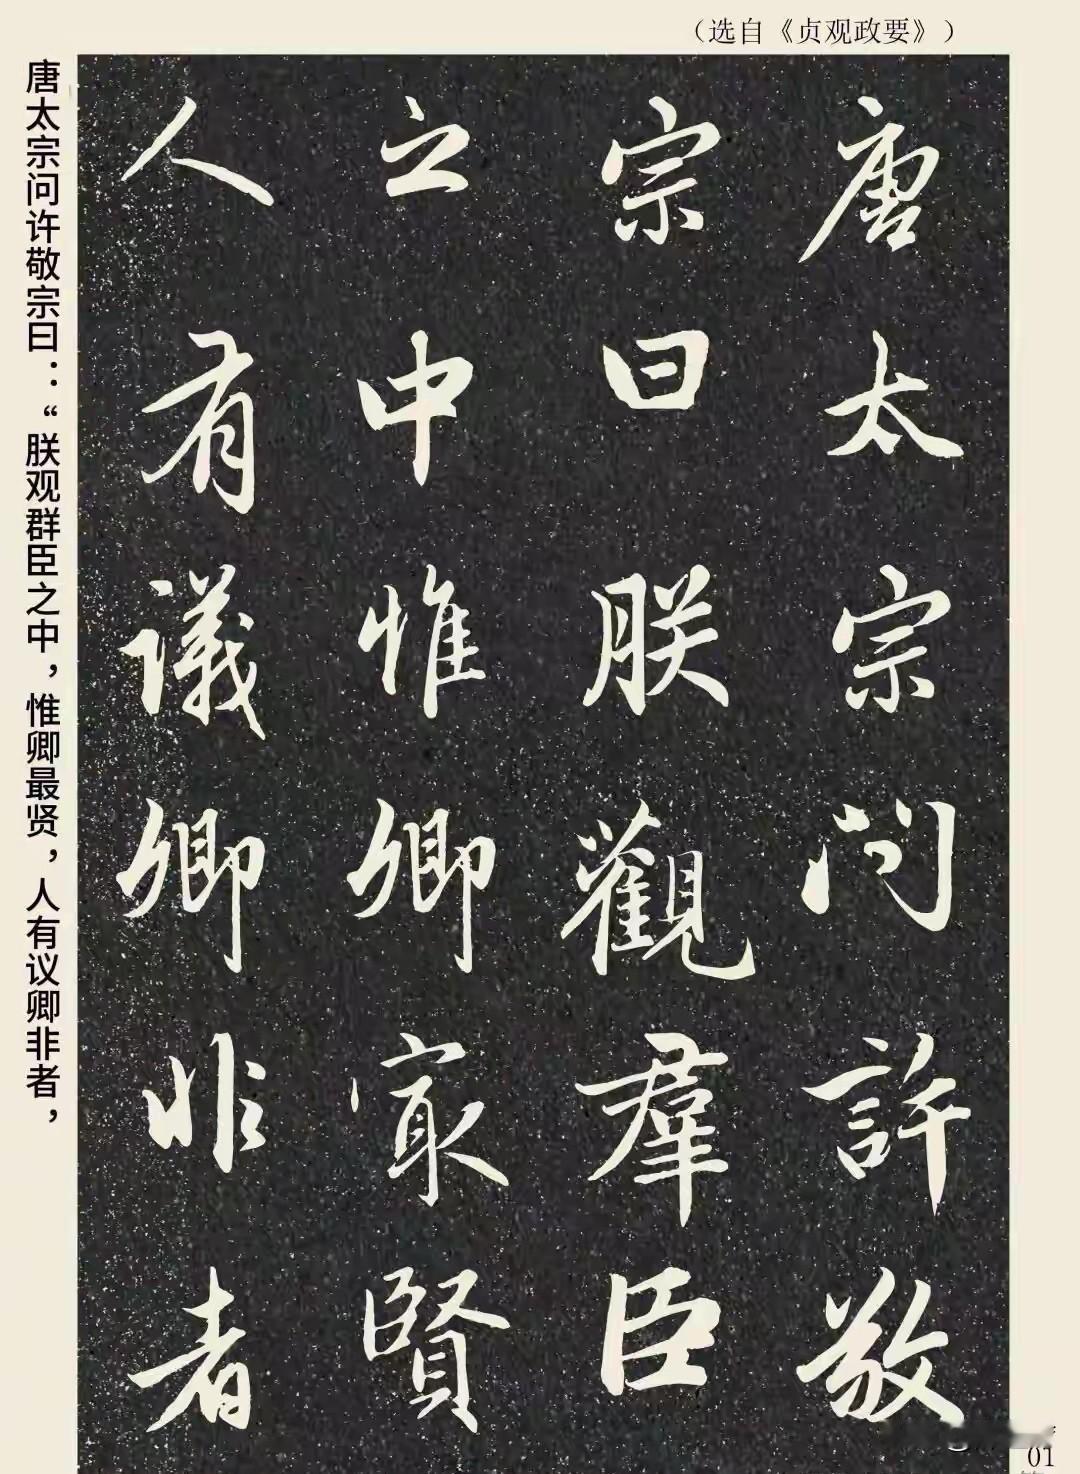 （选自《贞观政要》）
唐太宗问许敬宗曰：“朕观群臣之中，惟卿最贤，人有议卿非者，
唐太宗问許敬
宗曰朕觀羣臣
之中惟卿㝡賢
人有議卿非者
01